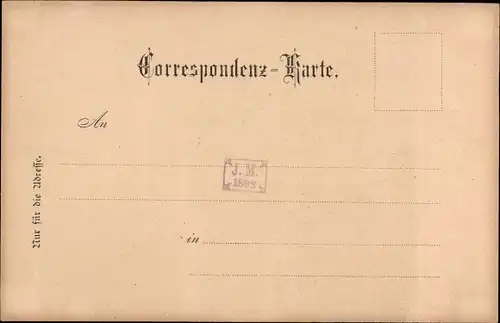 Correspondenz-Karte.
An
J. M.
1898
in
Nur für die Adresse.